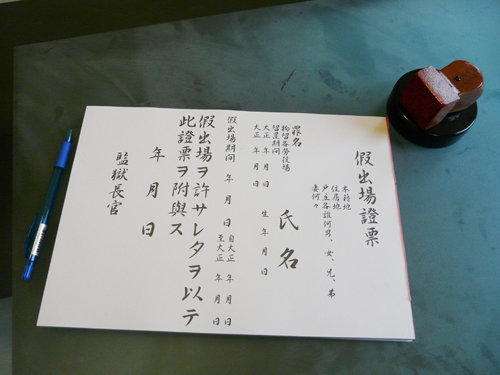 假出場證票
本籍地
住居地
戸主各誰何男、女、兄、弟
妻何々
氏名
生年月日
罪名
拘留各勞役場
留置期间
大正 年 月 日
大正 年 月 日
假出場期间 年 月 日 自大正 年 月 日
至大正 年 月 日
假出場ヲ許サレタヲ以テ
此證票ヲ附與ス
年 月 日
監獄長官